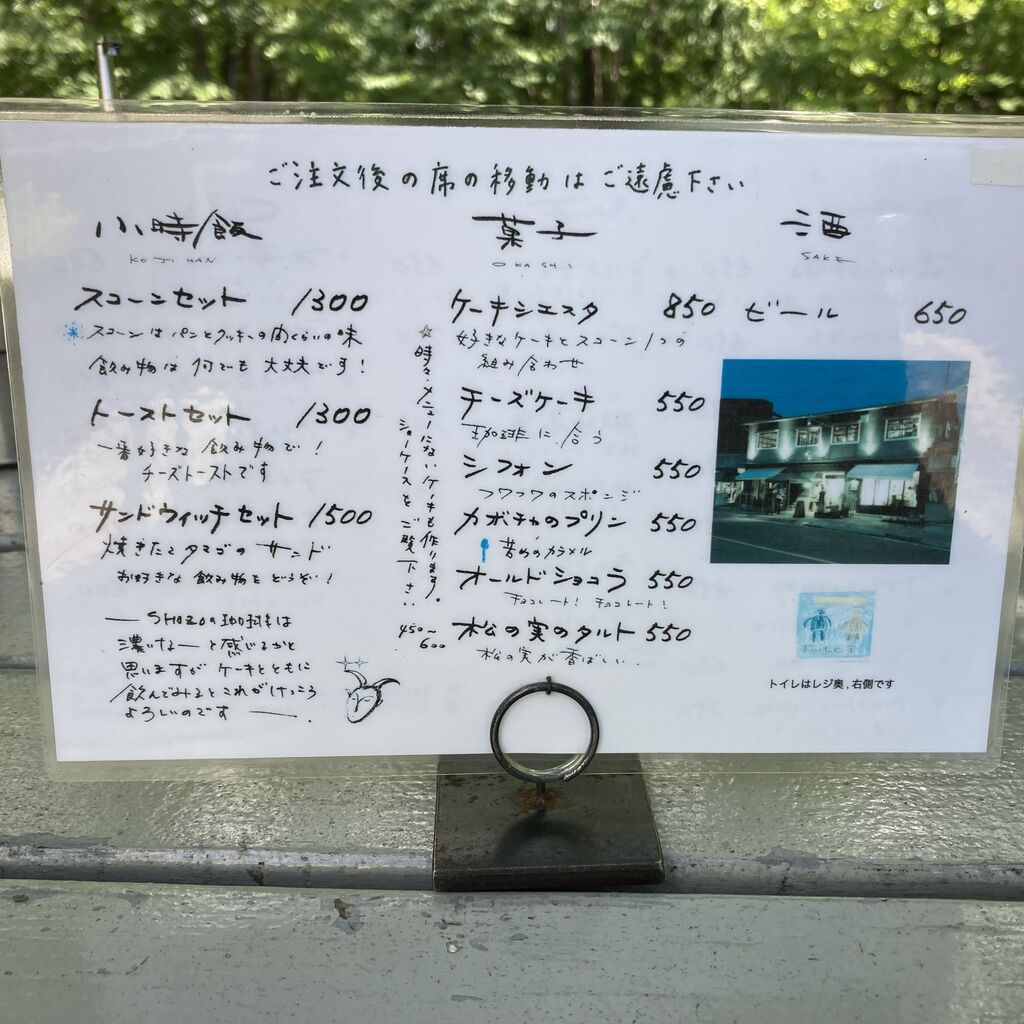 ご注文後の席の移動はご遠慮下さい
小時飯
KOJI HAN
スコーンセット 1300
スコーンはパンとクッキーの間くらいの味
飲み物は何でも大丈夫です!
トーストセット 1300
一番好きな飲み物で!
チーズトーストです
サンドウィッチセット 1500
焼きたてタマゴのサンド
お好きな飲み物をどうぞ!
— SHOZOの珈琲は
濃いなーと感じるかと
思いますがケーキとともに
飲んでみるとこれがけっこう
よろしいのです —.
菓子
OKASHI
ケーキシエスタ 850
好きなケーキとスコーン1つの
組み合わせ
チーズケーキ 550
珈琲に合う
シフォン 550
フワフワのスポンジ
カボチャのプリン 550
苦めのカラメル
オールドショコラ 550
チョコレート! チョコレート!
松の実のタルト 550
松の実が香ばしい..
☆時々・メニューにないケーキも作ります。
ショーケースをご覧下さい
450〜
600
酒
SAKE
ビール 650
トイレはレジ奥,右側です